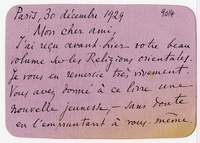 Paris, 30 décembre 1929 9014
Mon cher ami,
J'ai reçu avant-hier votre beau
volume sur les Religions orientales.
Je vous en remercie très vivement.
Vous avez donné à ce livre une
nouvelle jeunesse, — sans doute
en l'empruntant à vous-même.